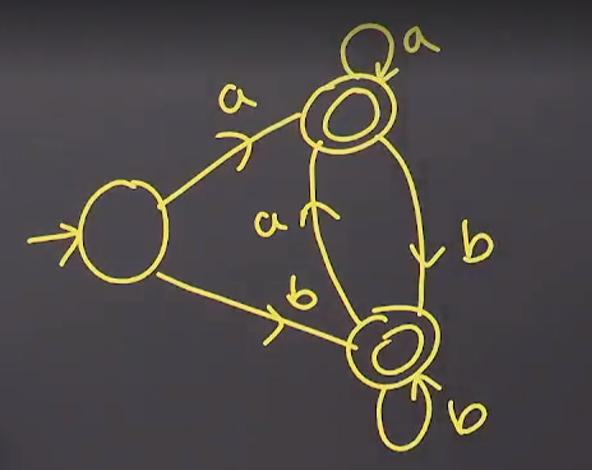 a
a
a
b
b
b